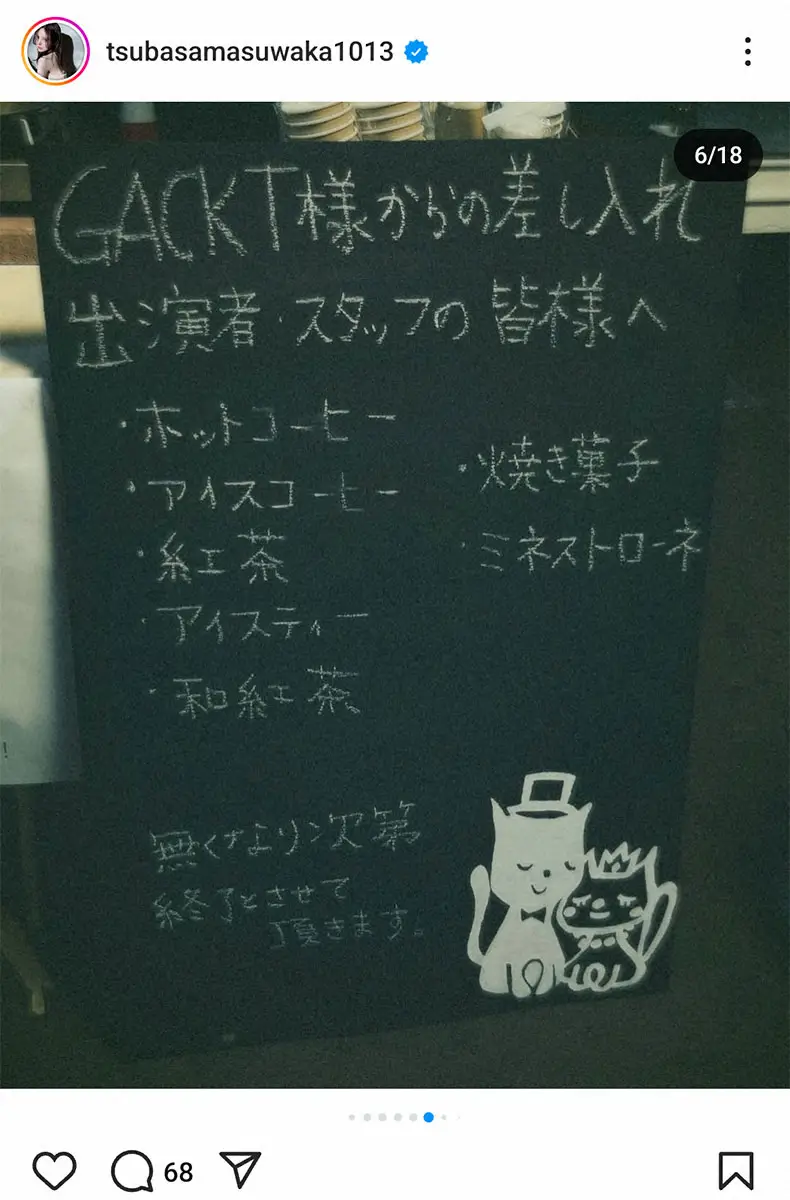 tsubasamasuwaka1013
6/18
GACKT様からの差し入れ
出演者・スタッフの皆様へ
・ホットコーヒー
・アイスコーヒー
・紅茶
・アイスティー
・和紅茶
・焼き菓子
・ミネストローネ
無くなり次第
終了とさせて
頂きます。
!
68